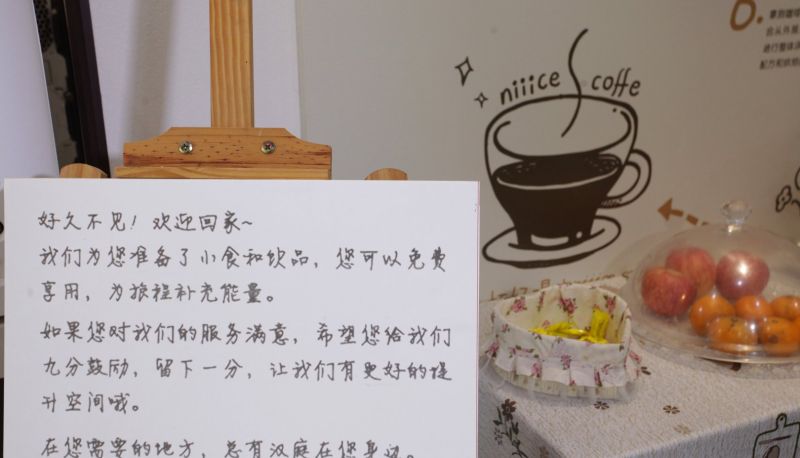 好久不见！欢迎回家~
我们为您准备了小食和饮品，您可以免费
享用，为旅程补充能量。
如果您对我们的服务满意，希望您给我们
九分鼓励，留下一分，让我们有更好的提
升空间哦。
在您需要的地方，总有汉庭在您身边。
niiice coffe
6.